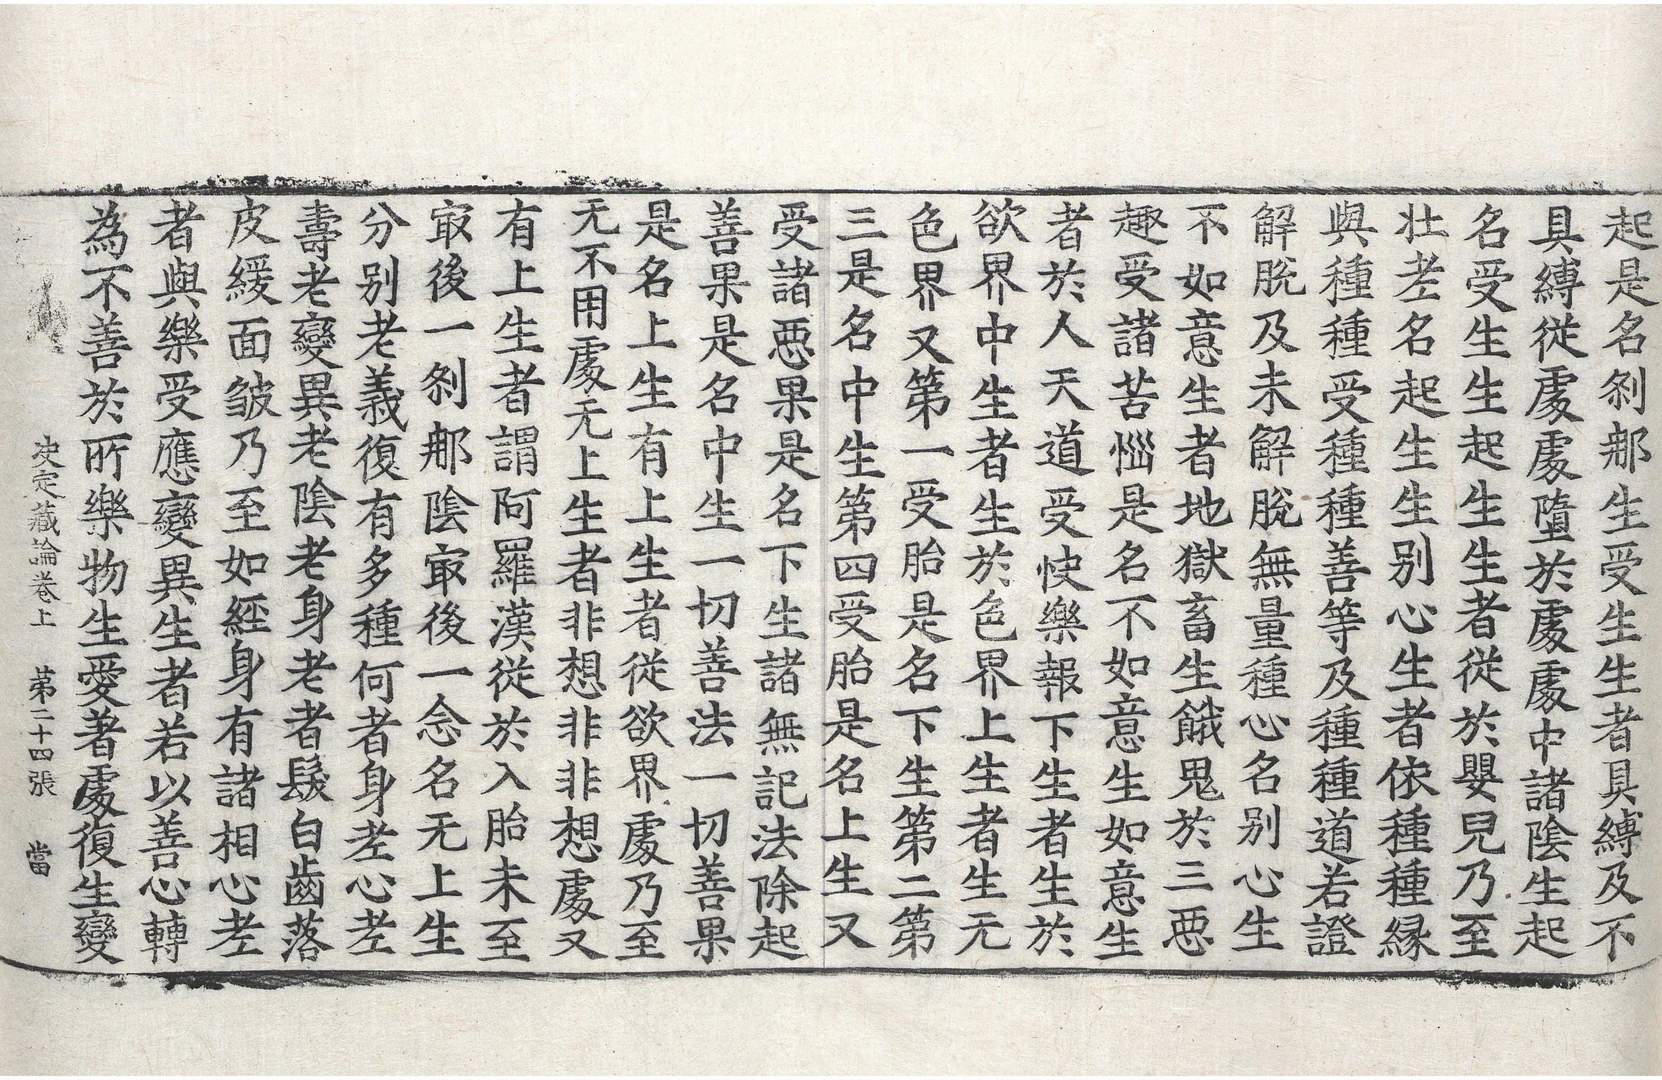 起是名刹那生受生生者具縛及不
具縛從處處墮於處處中諸陰生起
名受生生起生生者從於嬰兒乃至
壮老名起生生别心生者依種種縁
與種種受種種善等及種種道若證
解脫及未解脫無量種心名别心生
不如意生者地獄畜生餓鬼於三惡
趣受諸苦惱是名不如意生如意生
者於人天道受快樂報下生者生於
欲界中生者生於色界上生者生无
色界又第一受胎是名下生第二第
三是名中生第四受胎是名上生又
受諸惡果是名下生諸無記法除起
善果是名中生一切善法一切善果
是名上生有上生者從欲界處乃至
无不用處无上生者非想非非想處又
有上生者謂阿羅漢從於入胎未至
㝡後一刹那陰㝡後一念名无上生
分别老義復有多種何者身老心老
壽老變異老陰老身老者髮白齒落
皮緩面皺乃至如經身有諸相心老
者與樂受應變異生者若以善心轉
為不善於所樂物生愛著處復生變
决定藏論卷上 第二十四張 當